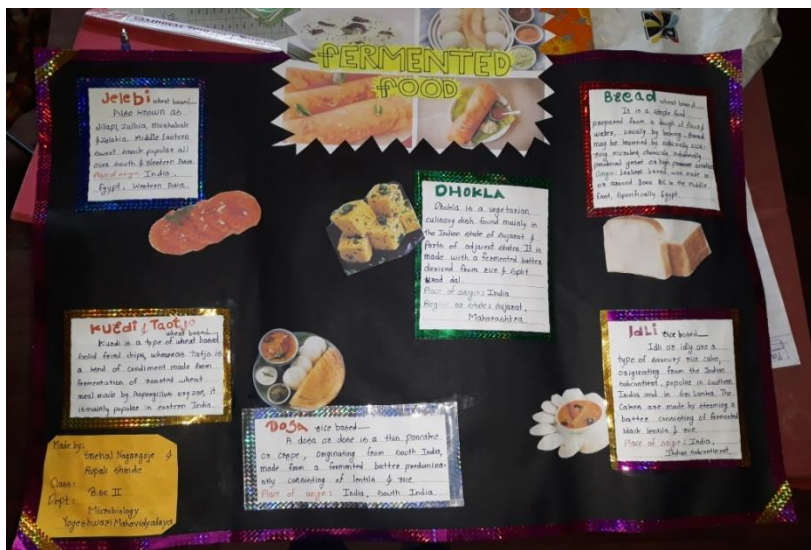 FERMENTED
FOOD
Jelebi wheat based
Also known as
Jilapi, zulbia, mushabak
& zalabia. Middle Eastern
sweet snack popular all
over South & Western Asia.
Place of origin: India,
Egypt, Western Asia.
Bread wheat based
It is a staple food
prepared from a dough of flour &
water, usually by baking. Bread
may be leavened by
microbes, chemicals, industrially
produced yeast or high pressure aeration
origin: bread was made in
or around 8000 BC in the Middle
East, specifically Egypt.
DHOKLA
Dhokla is a vegetarian
culinary dish found mainly in
the Indian state of Gujarat &
parts of adjacent states. It is
made with a fermented batter
derived from rice & split
urad dal.
Place of origin: India
Region or state: Gujarat,
Maharashtra.
Kurdi & Taotjo
wheat based
Kurdi is a type of wheat based
solid fried chips, whereas Tatjo is
a kind of condiment made from
fermentation of roasted wheat
meal made by
is mainly popular in eastern India.
Idli rice based
Idli or idly are a
type of savoury rice cake,
originating from the Indian
subcontinent, popular in Southern
India and in Sri Lanka. The
cakes are made by steaming a
batter consisting of fermented
black lentils & rice.
Place of origin: India,
Indian subcontinent.
Dosa rice based
A dosa or dose is a thin pancake
or crepe, originating from South India,
made from a fermented batter predomina-
ntly consisting of lentils & rice.
Place of origin: India, South India.
Made by:
Snehal Nagargoje &
Rupali Shinde
Class:
B.Sc II
Dept:
Microbiology
Yogeshwari Mahavidyalaya